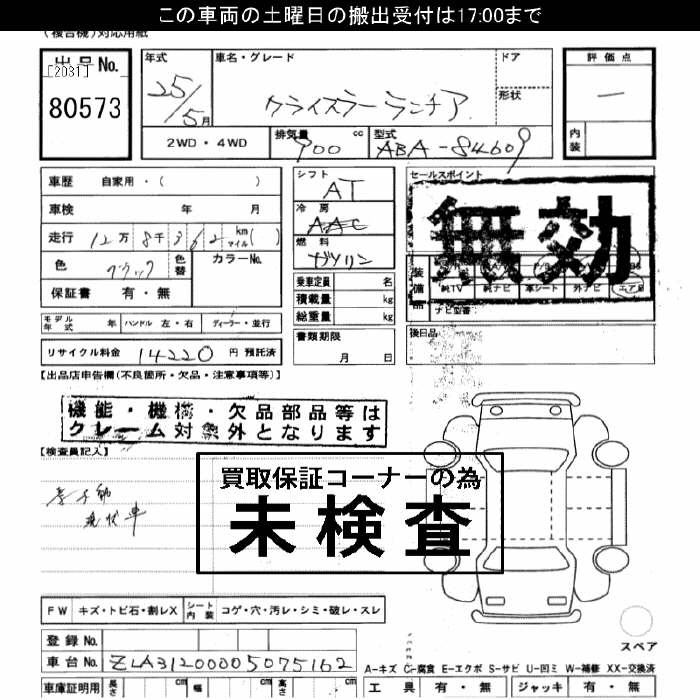 この車両の土曜日の搬出受付は17:00まで
(複合機)対応用紙
出品No.
[2031]
80573
年式
25/5月
車名・グレード
クライスラー ランチア
ドア
形状
評価点
一
内装
2WD・4WD
排気量 900 cc
型式 ABA-84609
車歴 自家用・( )
車検 年 月
走行 12万 8千 362 km マイル( )
色 ブラック
色替
カラーNo.
保証書 有・無
シフト
AT
冷房
AAC
燃料
ガソリン
乗車定員 名
積載量 kg
総重量 kg
セールスポイント
無効
装備品
純TV 純ナビ 革シート 外ナビ エアB
ナビ型番
モデル年式 年 ハンドル 左・右 ディーラー・並行
書類期限
月 日
後日品
リサイクル料金 14220 円 預託済
【出品店申告欄(不良箇所・欠品・注意事項等)】
機能・機構・欠品部品等は
クレーム対象外となります
【検査員記入】
現状車
買取保証コーナーの為
未検査
FW キズ・トビ石・割レX シート内装 コゲ・穴・汚レ・シミ・破レ・スレ
登録No.
車台No. ZLA31200005075162
車庫証明用 長さ cm 幅 cm 高さ cm
スペア
A-キズ C-腐食 E-エクボ S-サビ U-凹ミ W-補修 XX-交換済
工具 有・無 ジャッキ 有・無